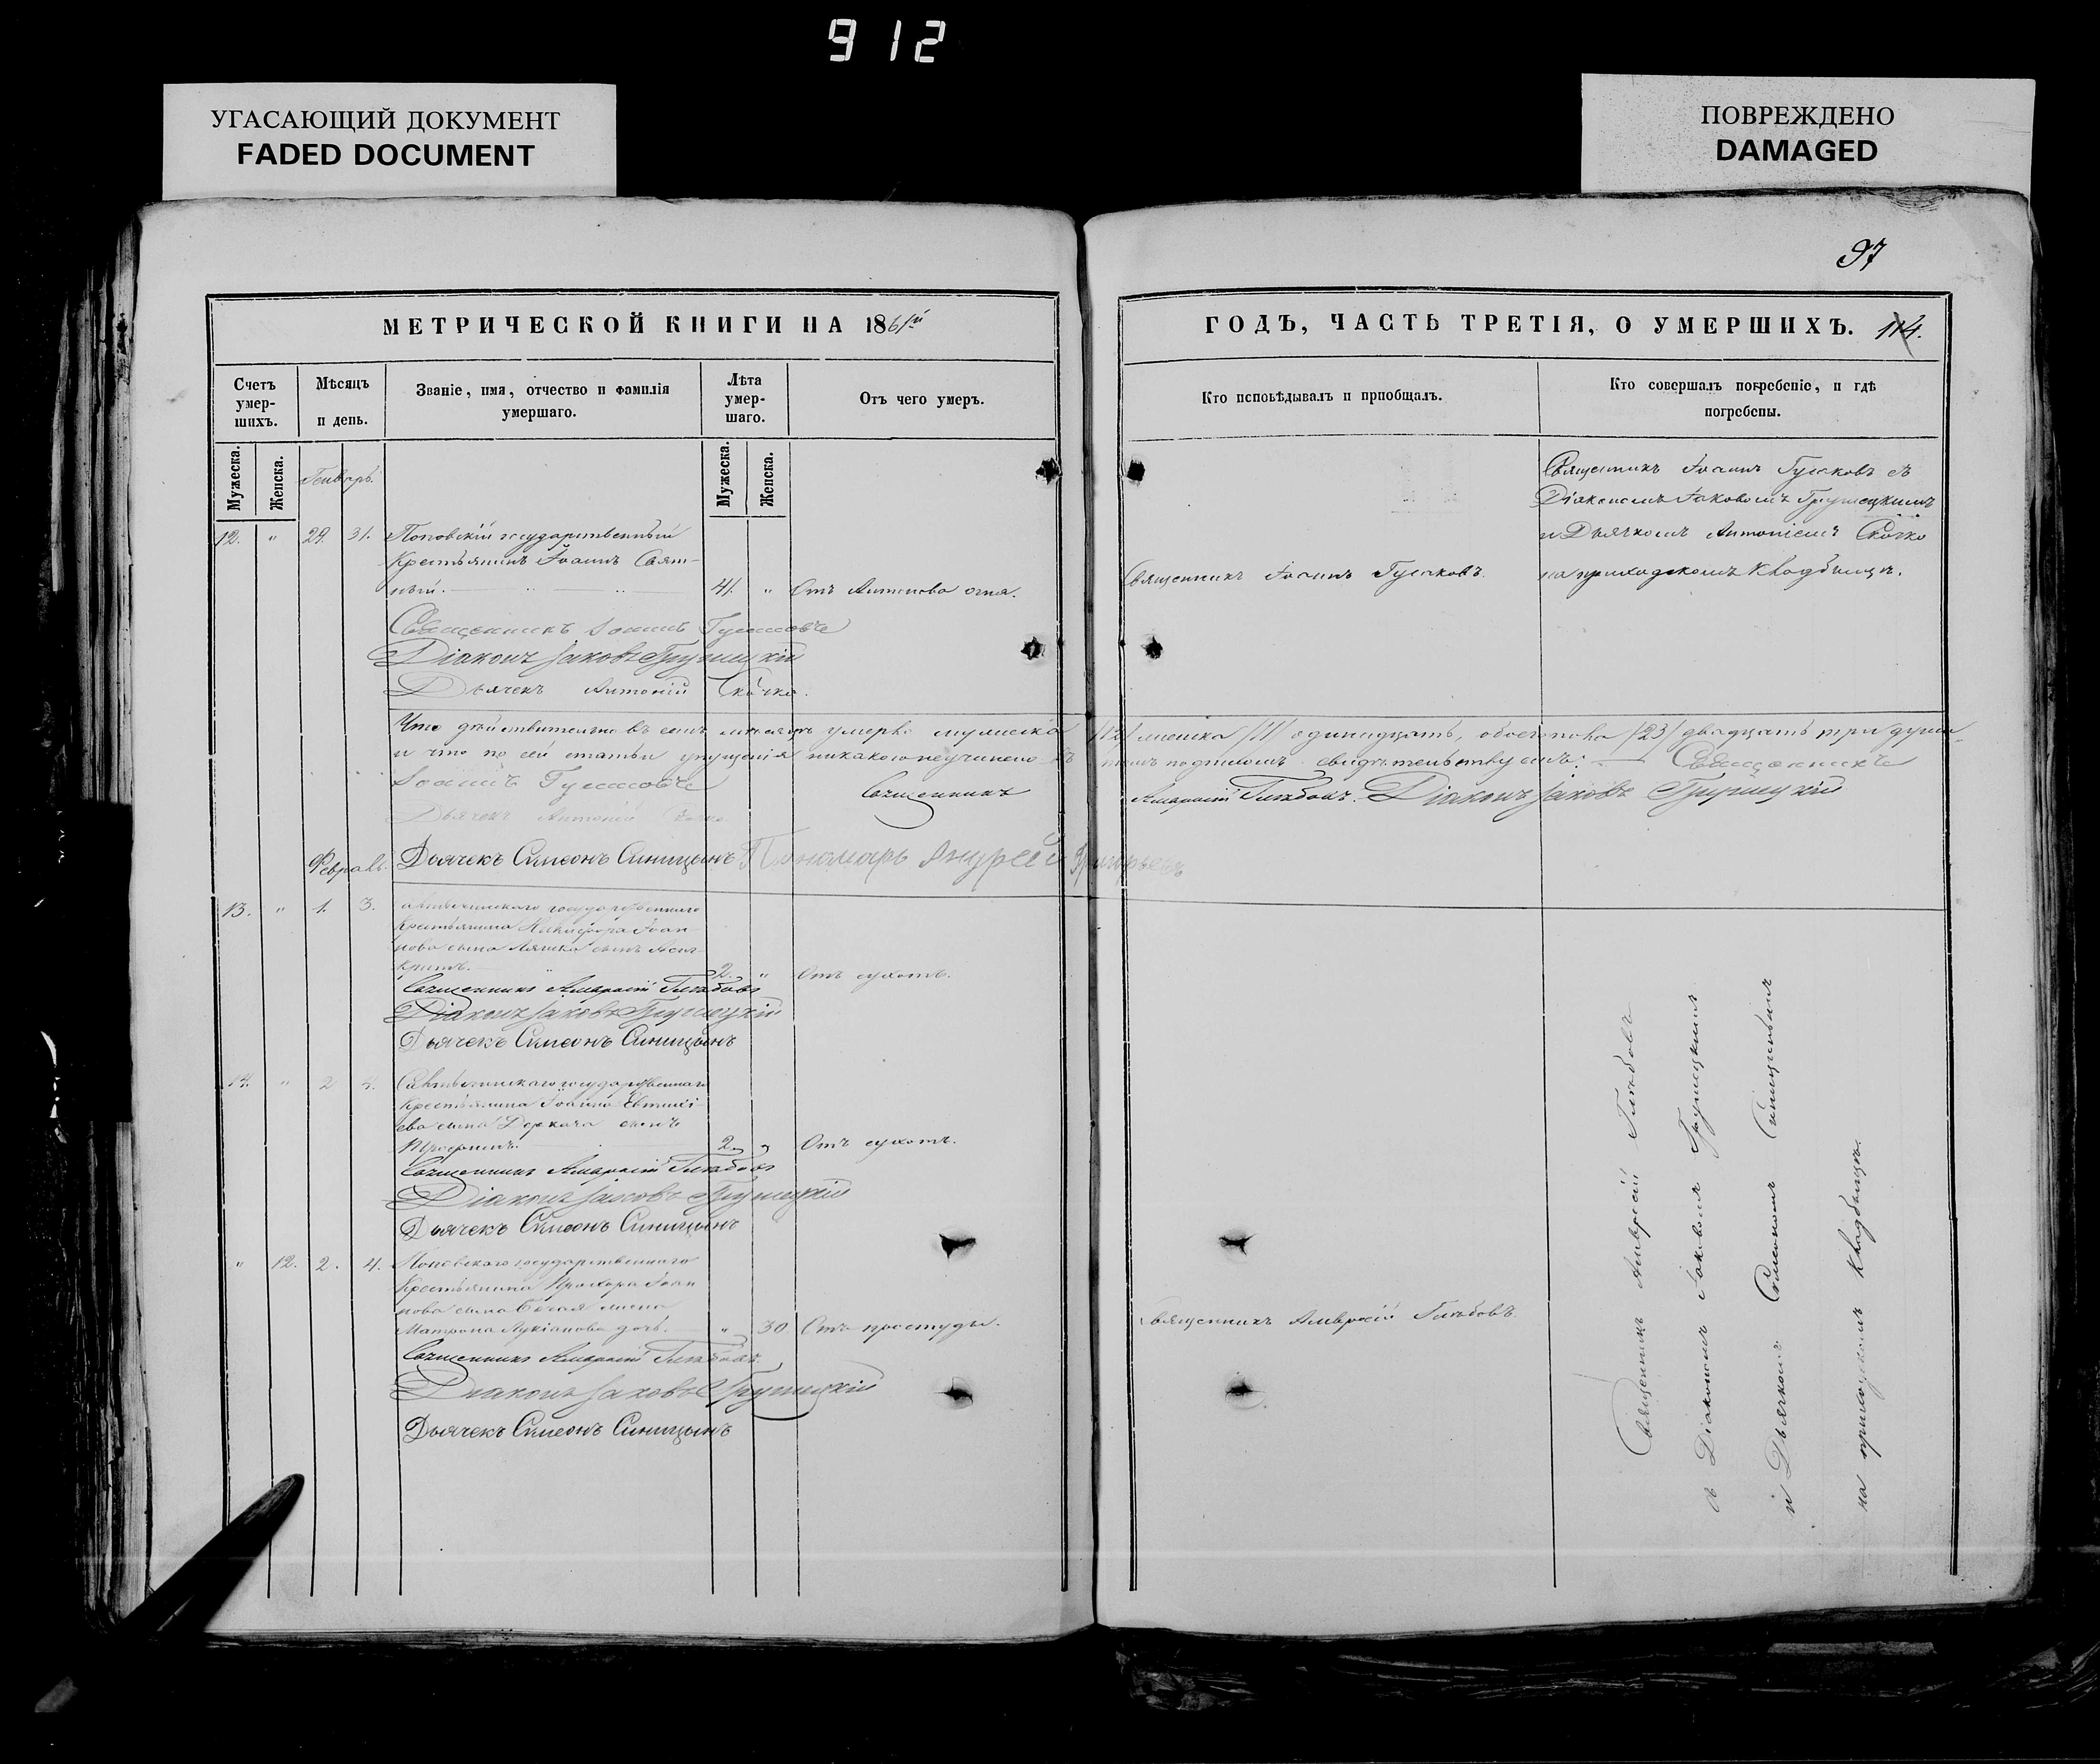 912
УГАСАЮЩИЙ ДОКУМЕНТ
FADED DOCUMENT
ПОВРЕЖДЕНО
DAMAGED
97
МЕТРИЧЕСКОЙ КНИГИ НА 1861й
ГОДЪ, ЧАСТЬ ТРЕТІЯ, О УМЕРШИХЪ. 114.
Счетъ умер-шихъ.
Мѣсяцъ и день.
Званіе, имя, отчество и фамилія умершаго.
Лѣта умер-шаго.
Отъ чего умеръ.
Кто исповѣдывалъ и пріобщалъ.
Кто совершалъ погребеніе, и гдѣ погребены.
Мужеска.
Женска.
Мужеска.
Женска.
Генварь.
12. " 29. 31. Поповскій государственный
Крестьянинъ Іоаннъ Свят-
ный. 41. " Отъ Антонова огня.
Священникъ Іоаннъ Гусаковъ.
Священникъ Іоаннъ Гусаковъ съ
Діакономъ Іаковомъ Грушецкимъ
и Дьячкомъ Антоніемъ Скочко
на приходскомъ кладбищѣ.
Священникъ Іоаннъ Гусаковъ
Діаконъ Іаковъ Грушецкій
Дьячекъ Антоній Скочко.
Что дѣйствительно въ семъ мѣсяцѣ умерло мужеска /12/ женска /11/ одинадцать, обоего пола /23/ двадцать три души
и что по сей статьи упущенія никакого неучинено въ томъ подписомъ свидѣтельствуемъ: Священникъ
Іоаннъ Гусаковъ
Священникъ Амвросій Глѣбовъ. Діаконъ Іаковъ Грушецкій
Дьячекъ Антоній Скочко
Дьячекъ Симеонъ Синицынъ Пономарь Андрей Григорьевъ
Февраль.
13. " 1. 3. государственнаго
Крестьянина Никифора Іоан-
нова сына Ляшка сынъ
2. " Отъ сухотъ.
Священникъ Амвросій Глѣбовъ
Діаконъ Іаковъ Грушецкій
Дьячекъ Симеонъ Синицынъ
14. " 2 4. государственнаго
Крестьянина Іоанна Евтихі-
ева сына Деркача сынъ
Трофимъ. 2. " Отъ сухотъ.
Священникъ Амвросій Глѣбовъ
Діаконъ Іаковъ Грушецкій
Дьячекъ Симеонъ Синицынъ
" 12. 2. 4. Поповскаго государственнаго
Крестьянина Прохора Іоан
нова сына жена
Матрона Лукіанова дочь. " 30 Отъ простуды.
Священникъ Амвросій Глѣбовъ.
Священникъ Амвросій Глѣбовъ.
Діаконъ Іаковъ Грушецкій
Дьячекъ Симеонъ Синицынъ
Священникъ Амвросій Глѣбовъ
съ Діакономъ Іаковомъ Грушецкимъ
и Дьячкомъ Симеономъ Синицынымъ
на приходскомъ кладбищѣ.